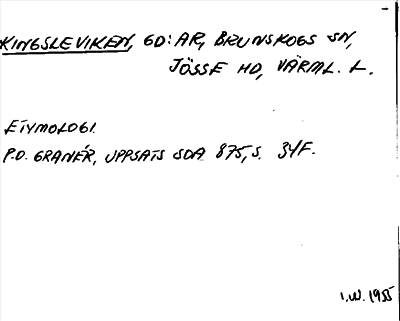 KINGSLEVIKEN, GD: AR, BRUNSKOGS SN,
JÖSSE HD, VÄRML. L.
ETYMOLOGI.
P.O. GRANÉR, UPPSATS SOA 875, S. 34F.
I.W. 1955